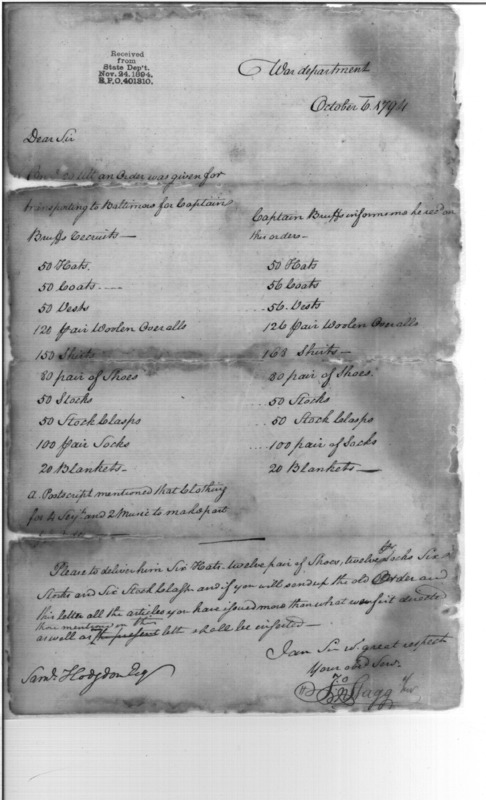 Received
from
State Dep't.
Nov. 24. 1894.
R.P.O. 401310.
War department
October 6. 1794
Dear Sir
an Order was given for
transporting to Baltimore for Captain
Bruffs Recruits —
50 Hats.
50 Coats
50 Vests
120 Pair Woolen Overalls
150 Shirts
80 pair of Shoes
50 Stocks
50 Stock Clasps
100 Pair Socks
20 Blankets —
a Postscript mentioned that Clothing
for 4 Serjts and 2 Music to make part
Captain Bruff informs me he recd on
this order —
50 Hats
56 Coats
56 Vests
126 Pair Woolen Overalls
168 Shirts —
80 pair of Shoes.
50 Stocks
50 Stock Clasps
100 pair of Socks
20 Blankets —
Please to deliver him Six Hats. twelve pair of Shoes, twelve pr Socks Six
Stocks and Six Stock Clasps and if you will send up the old Order and
this letter all the articles you have issued more than what
those mentioned in the
as well as the present lett shall be inserted —
I am Sir wt. great respect
Your obd Serv.
Jno Stagg Jr
Saml. Hodgdon Esq